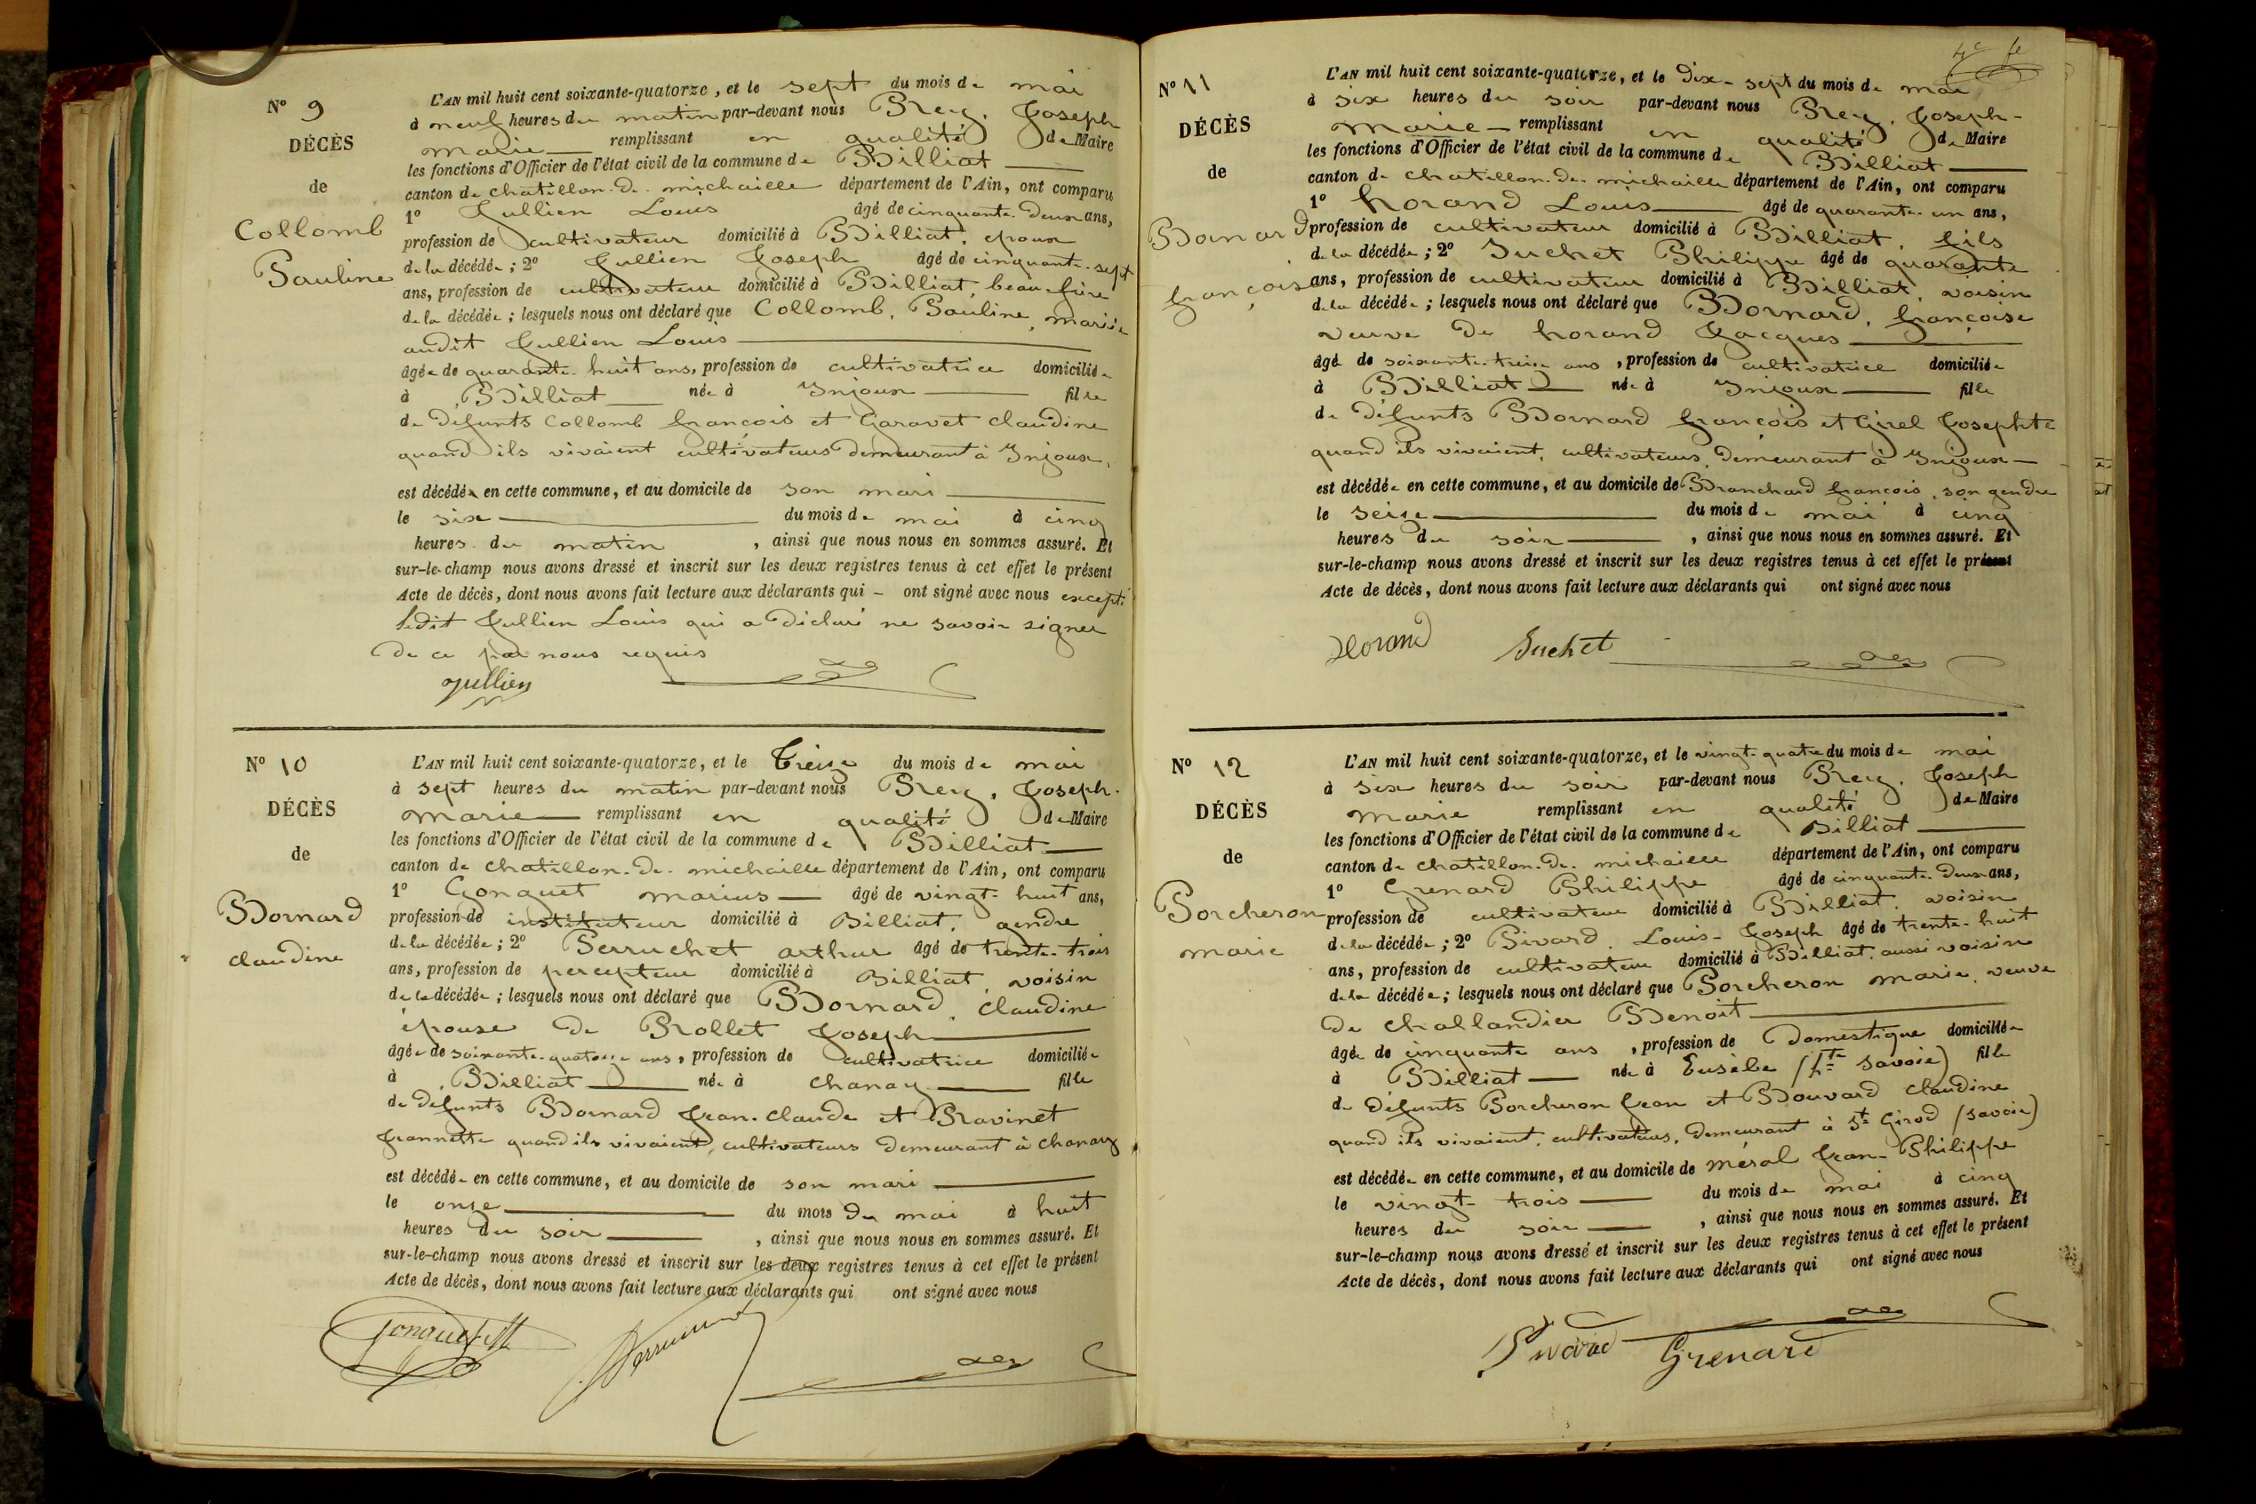 N° 9
DÉCÈS
de
Collomb
Pauline
L'AN mil huit cent soixante-quatorze, et le sept du mois de mai
à neuf heures du matin par-devant nous Prey, Joseph
marie — remplissant en qualité de Maire
les fonctions d'Officier de l'état civil de la commune de Billiat —
canton de chatillon-de-michaille département de l'Ain, ont comparu
1° Jullien Louis âgé de cinquante-deux ans,
profession de cultivateur domicilié à Billiat, époux
de la décédée ; 2° Jullien Joseph âgé de cinquante-sept
ans, profession de cultivateur domicilié à Billiat, beau-frère
de la décédée ; lesquels nous ont déclaré que Collomb, Pauline, mariée
audit Jullien Louis —
âgée de quarante-huit ans, profession de cultivatrice domiciliée
à Billiat — née à Injoux — fille
de défunts Collomb françois et Garavet claudine
quand ils vivaient cultivateurs demeurant à Injoux,
est décédée en cette commune, et au domicile de son mari —
le six — du mois de mai à cinq
heures du matin , ainsi que nous nous en sommes assuré. Et
sur-le-champ nous avons dressé et inscrit sur les deux registres tenus à cet effet le présent
Acte de décès, dont nous avons fait lecture aux déclarants qui – ont signé avec nous excepté
ledit Jullien Louis qui a déclaré ne savoir signer
de ce par nous requis
Jullien
N° 10
DÉCÈS
de
Bornard
claudine
L'AN mil huit cent soixante-quatorze, et le Treize du mois de mai
à sept heures du matin par-devant nous Prey, Joseph-
marie — remplissant en qualité de Maire
les fonctions d'Officier de l'état civil de la commune de Billiat —
canton de chatillon-de-michaille département de l'Ain, ont comparu
1° Gonguet marius — âgé de vingt-huit ans,
profession de instituteur domicilié à Billiat, gendre
de la décédée ; 2° Perruchet arthur âgé de trente-trois
ans, profession de percepteur domicilié à Billiat, voisin
de la décédée ; lesquels nous ont déclaré que Bornard, claudine
épouse de Prollet Joseph —
âgée de soixante-quatorze ans, profession de cultivatrice domiciliée
à Billiat — née à chanay — fille
de défunts Bornard Jean-claude et Ravinet
Jeannette quand ils vivaient, cultivateurs demeurant à chanay
est décédée en cette commune, et au domicile de son mari —
le onze — du mois de mai à huit
heures du soir — , ainsi que nous nous en sommes assuré. Et
sur-le-champ nous avons dressé et inscrit sur les deux registres tenus à cet effet le présent
Acte de décès, dont nous avons fait lecture aux déclarants qui ont signé avec nous
Gonguet
N° 11
DÉCÈS
de
Bornard
françoise
L'AN mil huit cent soixante-quatorze, et le Dix-sept du mois de mai
à six heures du soir par-devant nous Prey, Joseph-
marie — remplissant en qualité de Maire
les fonctions d'Officier de l'état civil de la commune de Billiat —
canton de chatillon-de-michaille département de l'Ain, ont comparu
1° horand Louis — âgé de quarante-un ans,
profession de cultivateur domicilié à Billiat, fils
de la décédée ; 2° Suchet Philippe âgé de quarante
ans, profession de cultivateur domicilié à Billiat, voisin
de la décédée ; lesquels nous ont déclaré que Bornard, françoise
veuve de horand Jacques —
âgé de soixante-treize ans , profession de cultivatrice domiciliée
à Billiat — née à Injoux — fille
de défunts Bornard françois et Girel Josephte
quand ils vivaient, cultivateurs, demeurant à Injoux —
est décédée en cette commune, et au domicile de Branchard françois, son gendre
le seize — du mois de mai à cinq
heures du soir — , ainsi que nous nous en sommes assuré. Et
sur-le-champ nous avons dressé et inscrit sur les deux registres tenus à cet effet le présent
Acte de décès, dont nous avons fait lecture aux déclarants qui ont signé avec nous
Horand Suchet
N° 12
DÉCÈS
de
Porcheron
marie
L'AN mil huit cent soixante-quatorze, et le vingt-quatre du mois de mai
à six heures du soir par-devant nous Prey, Joseph
marie remplissant en qualité de Maire
les fonctions d'Officier de l'état civil de la commune de Billiat —
canton de chatillon-de-michaille département de l'Ain, ont comparu
1° Grenard Philippe âgé de cinquante-deux ans,
profession de cultivateur domicilié à Billiat, voisin
de la décédée ; 2° Pivard, Louis-Joseph âgé de trente-huit
ans, profession de cultivateur domicilié à Billiat, aussi voisin
de la décédée ; lesquels nous ont déclaré que Porcheron marie, veuve
de challandier Benoit —
âgée de cinquante ans , profession de domestique domiciliée
à Billiat — née à Eusèbe (hte savoie) fille
de défunts Porcheron Jean et Bouvard claudine
quand ils vivaient, cultivateurs, demeurant à St Girod (savoie)
est décédée en cette commune, et au domicile de méral Jean-Philippe
le vingt-trois — du mois de mai à cinq
heures du soir — , ainsi que nous nous en sommes assuré. Et
sur-le-champ nous avons dressé et inscrit sur les deux registres tenus à cet effet le présent
Acte de décès, dont nous avons fait lecture aux déclarants qui ont signé avec nous
Pivard Grenard